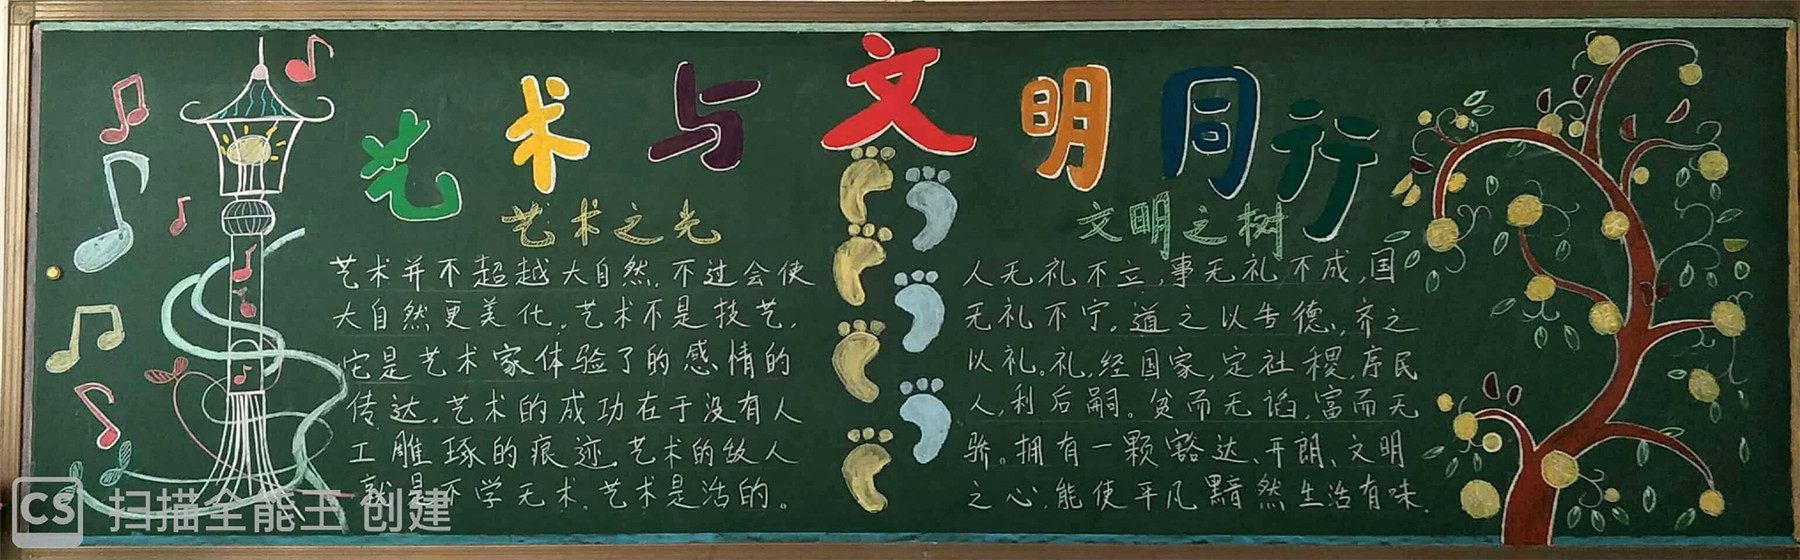 艺术与文明同行
艺术之光
艺术并不超越大自然,不过会使
大自然更美化。艺术不是技艺,
它是艺术家体验了的感情的
传达。艺术的成功在于没有人
工雕琢的痕迹。艺术的敌人
就是不学无术。艺术是活的。
文明之树
人无礼不立,事无礼不成,国
无礼不宁。道之以告德,齐之
以礼。礼,经国家,定社稷,序民
人,利后嗣。贫而无谄,富而无
骄。拥有一颗豁达、开朗、文明
之心,能使平凡黯然生活有味.
CS 扫描全能王 创建